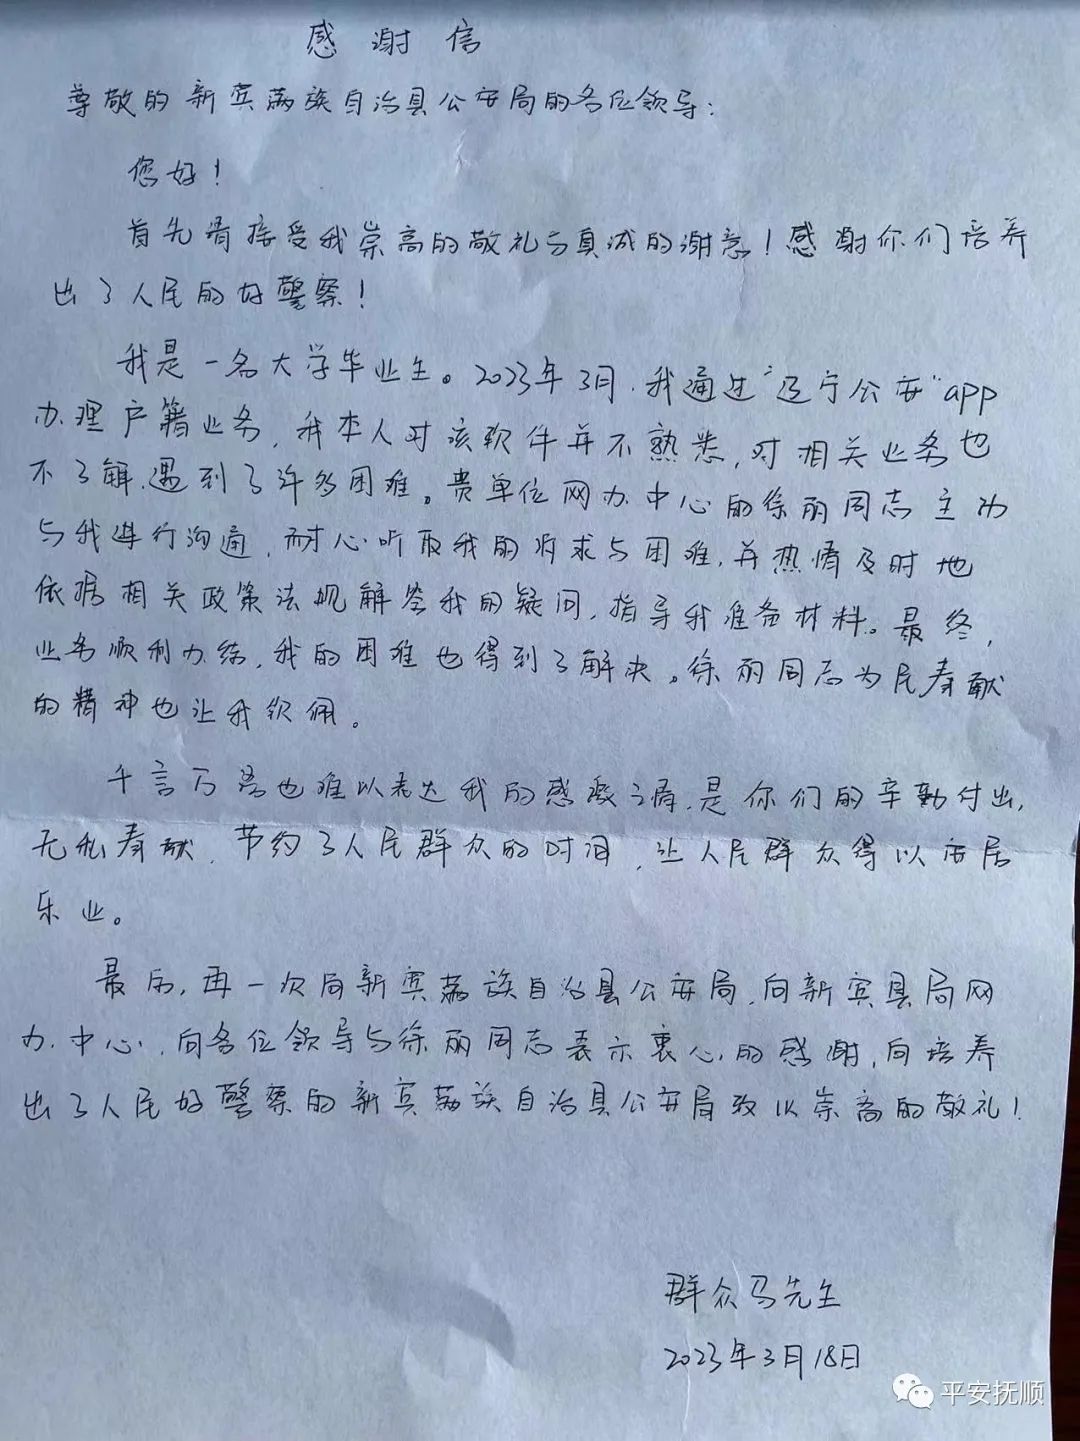 感谢信
尊敬的新宾满族自治县公安局的各位领导：
您好！
首先请接受我崇高的敬礼与真诚的谢意！感谢你们培养
出了人民的好警察！
我是一名大学毕业生。2023年3月，我通过"辽宁公安"app
办理户籍业务，我本人对该软件并不熟悉，对相关业务也
不了解，遇到了许多困难。贵单位网办中心的徐丽同志主动
与我进行沟通，耐心听取我的诉求与困难，并热情及时地
依据相关政策法规解答我的疑问，指导我准备材料。最终，
业务顺利办结，我的困难也得到了解决。徐丽同志为民奉献
的精神也让我钦佩。
千言万语也难以表达我的感激之情，是你们的辛勤付出，
无私奉献，节约了人民群众的时间，让人民群众得以安居
乐业。
最后，再一次向新宾满族自治县公安局，向新宾县局网
办中心，向各位领导与徐丽同志表示衷心的感谢，向培养
出了人民好警察的新宾满族自治县公安局致以崇高的敬礼！
群众马先生
2023年3月18日
平安抚顺